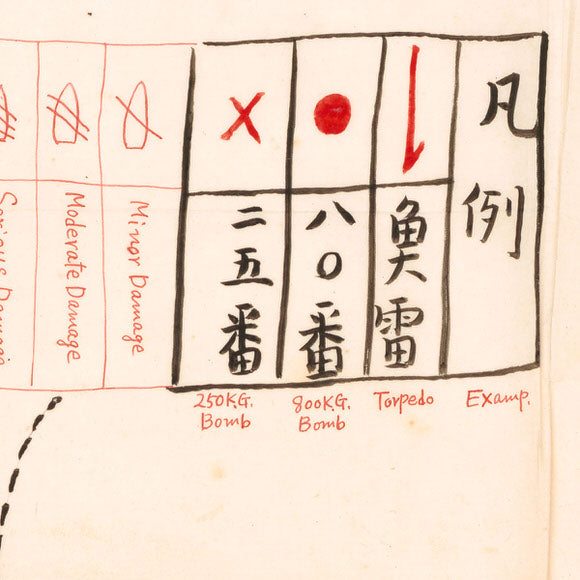 凡例
魚雷
八〇番
二五番
Minor Damage
Moderate Damage
Serious Damage
Examp.
Torpedo
800KG.
Bomb
250KG.
Bomb